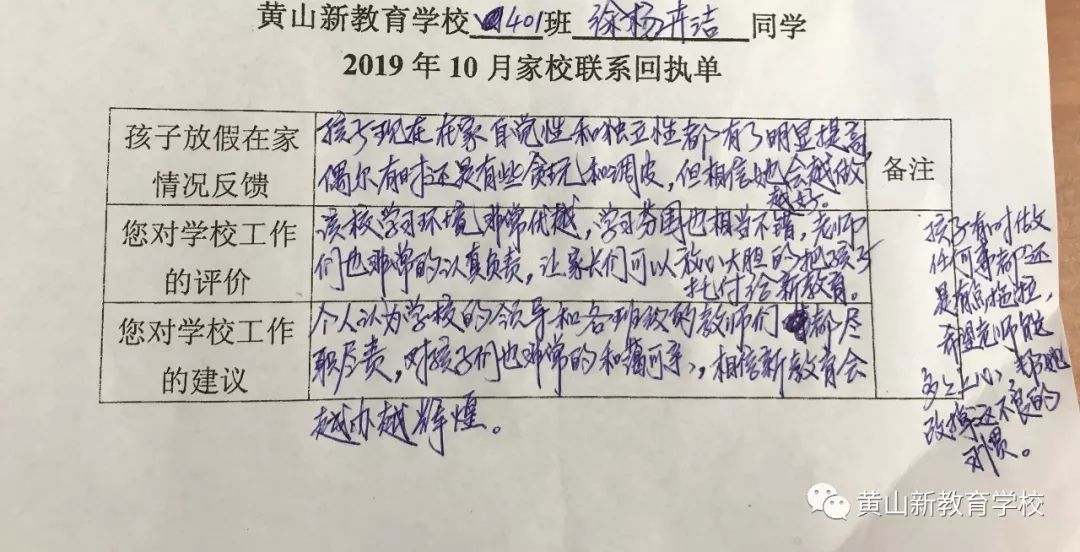 黄山新教育学校 401班 徐杨卉洁 同学
2019 年 10 月家校联系回执单
孩子放假在家
情况反馈
孩子现在在家自觉性和独立性都有了明显提高,
偶尔有时还是有些贪玩和调皮,但相信她会越做
越好。
备注
您对学校工作
的评价
该校学习环境非常优越,学习氛围也相当不错,老师
们也非常的认真负责,让家长们可以放心大胆的把孩子
托付给新教育。
您对学校工作
的建议
个人认为学校的领导和各班级的教师们都尽
职尽责,对孩子们也非常的和蔼可亲,相信新教育会
越办越辉煌。
孩子有时做
任何事都还
是有点拖拉,
希望老师能
多多上心,帮她
改掉这不良的
习惯。
黄山新教育学校